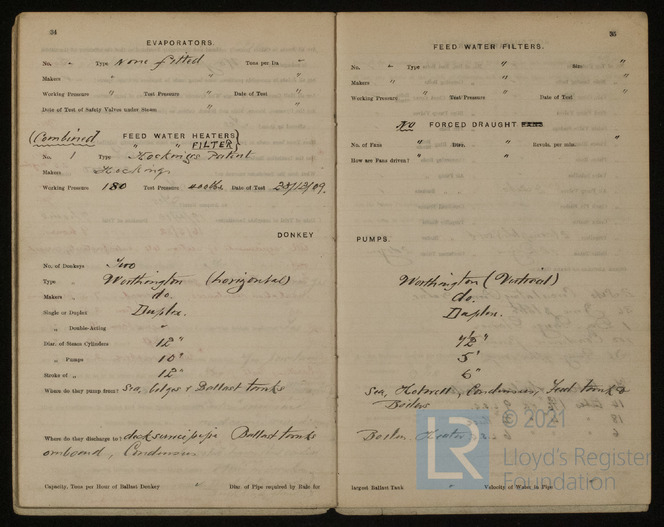 34
EVAPORATORS.
No. " Type None fitted Tons per Da "
Makers " "
Working Pressure " Test Pressure " Date of Test "
Date of Test of Safety Valves under Steam "
(Combined FEED WATER HEATERS)
" " FILTER
No. 1 Type Hocking's Patent
Makers Hocking
Working Pressure 180 Test Pressure 400 lbs. Date of Test 23/12/09.
DONKEY
No. of Donkeys Two
Type " Worthington (horizontal)
Makers " do.
Single or Duplex Duplex.
" Double-Acting "
Diar. of Steam Cylinders 12"
" Pumps 10"
Stroke of " 12"
Where do they pump from? Sea, bilges & Ballast tanks
Where do they discharge to? deck service pipe Ballast tanks
overboard, Condenser
Capacity, Tons per Hour of Ballast Donkey " Diar. of Pipe required by Rule for
35
FEED WATER FILTERS.
No. " Type " Size "
Makers " "
Working Pressure " Test Pressure " Date of Test "
No FORCED DRAUGHT FANS.
No. of Fans " Diar. " Revols. per min. "
How are Fans driven? " "
PUMPS.
Worthington (Vertical)
do.
Duplex.
7½"
5"
6"
Sea, Hotwell, Condenser, Feed tanks &
Boilers
Boiler, Heater
largest Ballast Tank " Velocity of Water in Pipe "
LR
© 2021
Lloyd's Register
Foundation